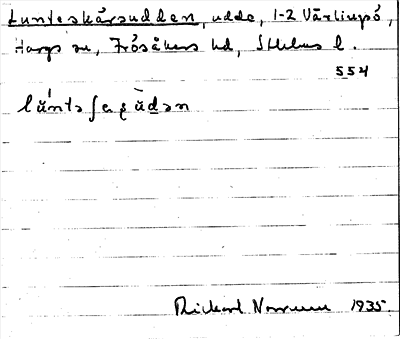 Lunteskärsudden, udde, 1-2 Värlinpö,
Hargs sn, Frösåkers hd, Sthlms l.
554
lŭ́ntəʃæ̨rŭ̀dən
Rickard Norrman 1935.